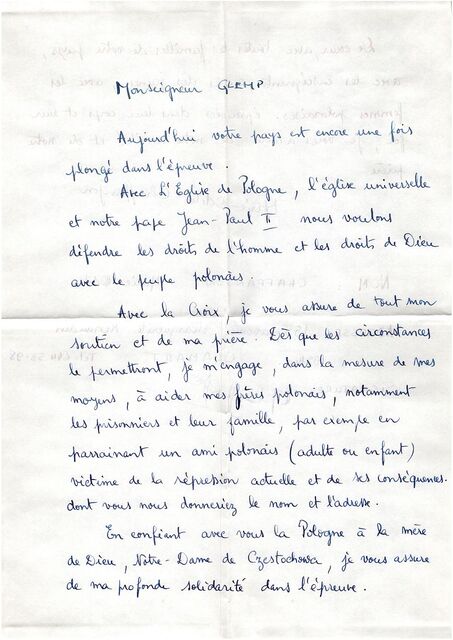 Monseigneur GLEMP
Aujourd'hui votre pays est encore une fois
plongé dans l'épreuve.
Avec L'Eglise de Pologne, l'église universelle
et notre pape Jean-Paul II nous voulons
défendre les droits de l'homme et les droits de Dieu
avec le peuple polonais.
Avec la Croix, je vous assure de tout mon
soutien et de ma prière. Dès que les circonstances
le permettront, je m'engage, dans la mesure de mes
moyens, à aider mes frères polonais, notamment
les prisonniers et leur famille, par exemple en
parrainant un ami polonais (adulte ou enfant)
victime de la répression actuelle et de ses conséquences.
dont vous nous donneriez le nom et l'adresse.
En confiant avec vous la Pologne à la mère
de Dieu, Notre-Dame de Czestochowa, je vous assure
de ma profonde solidarité dans l'épreuve.